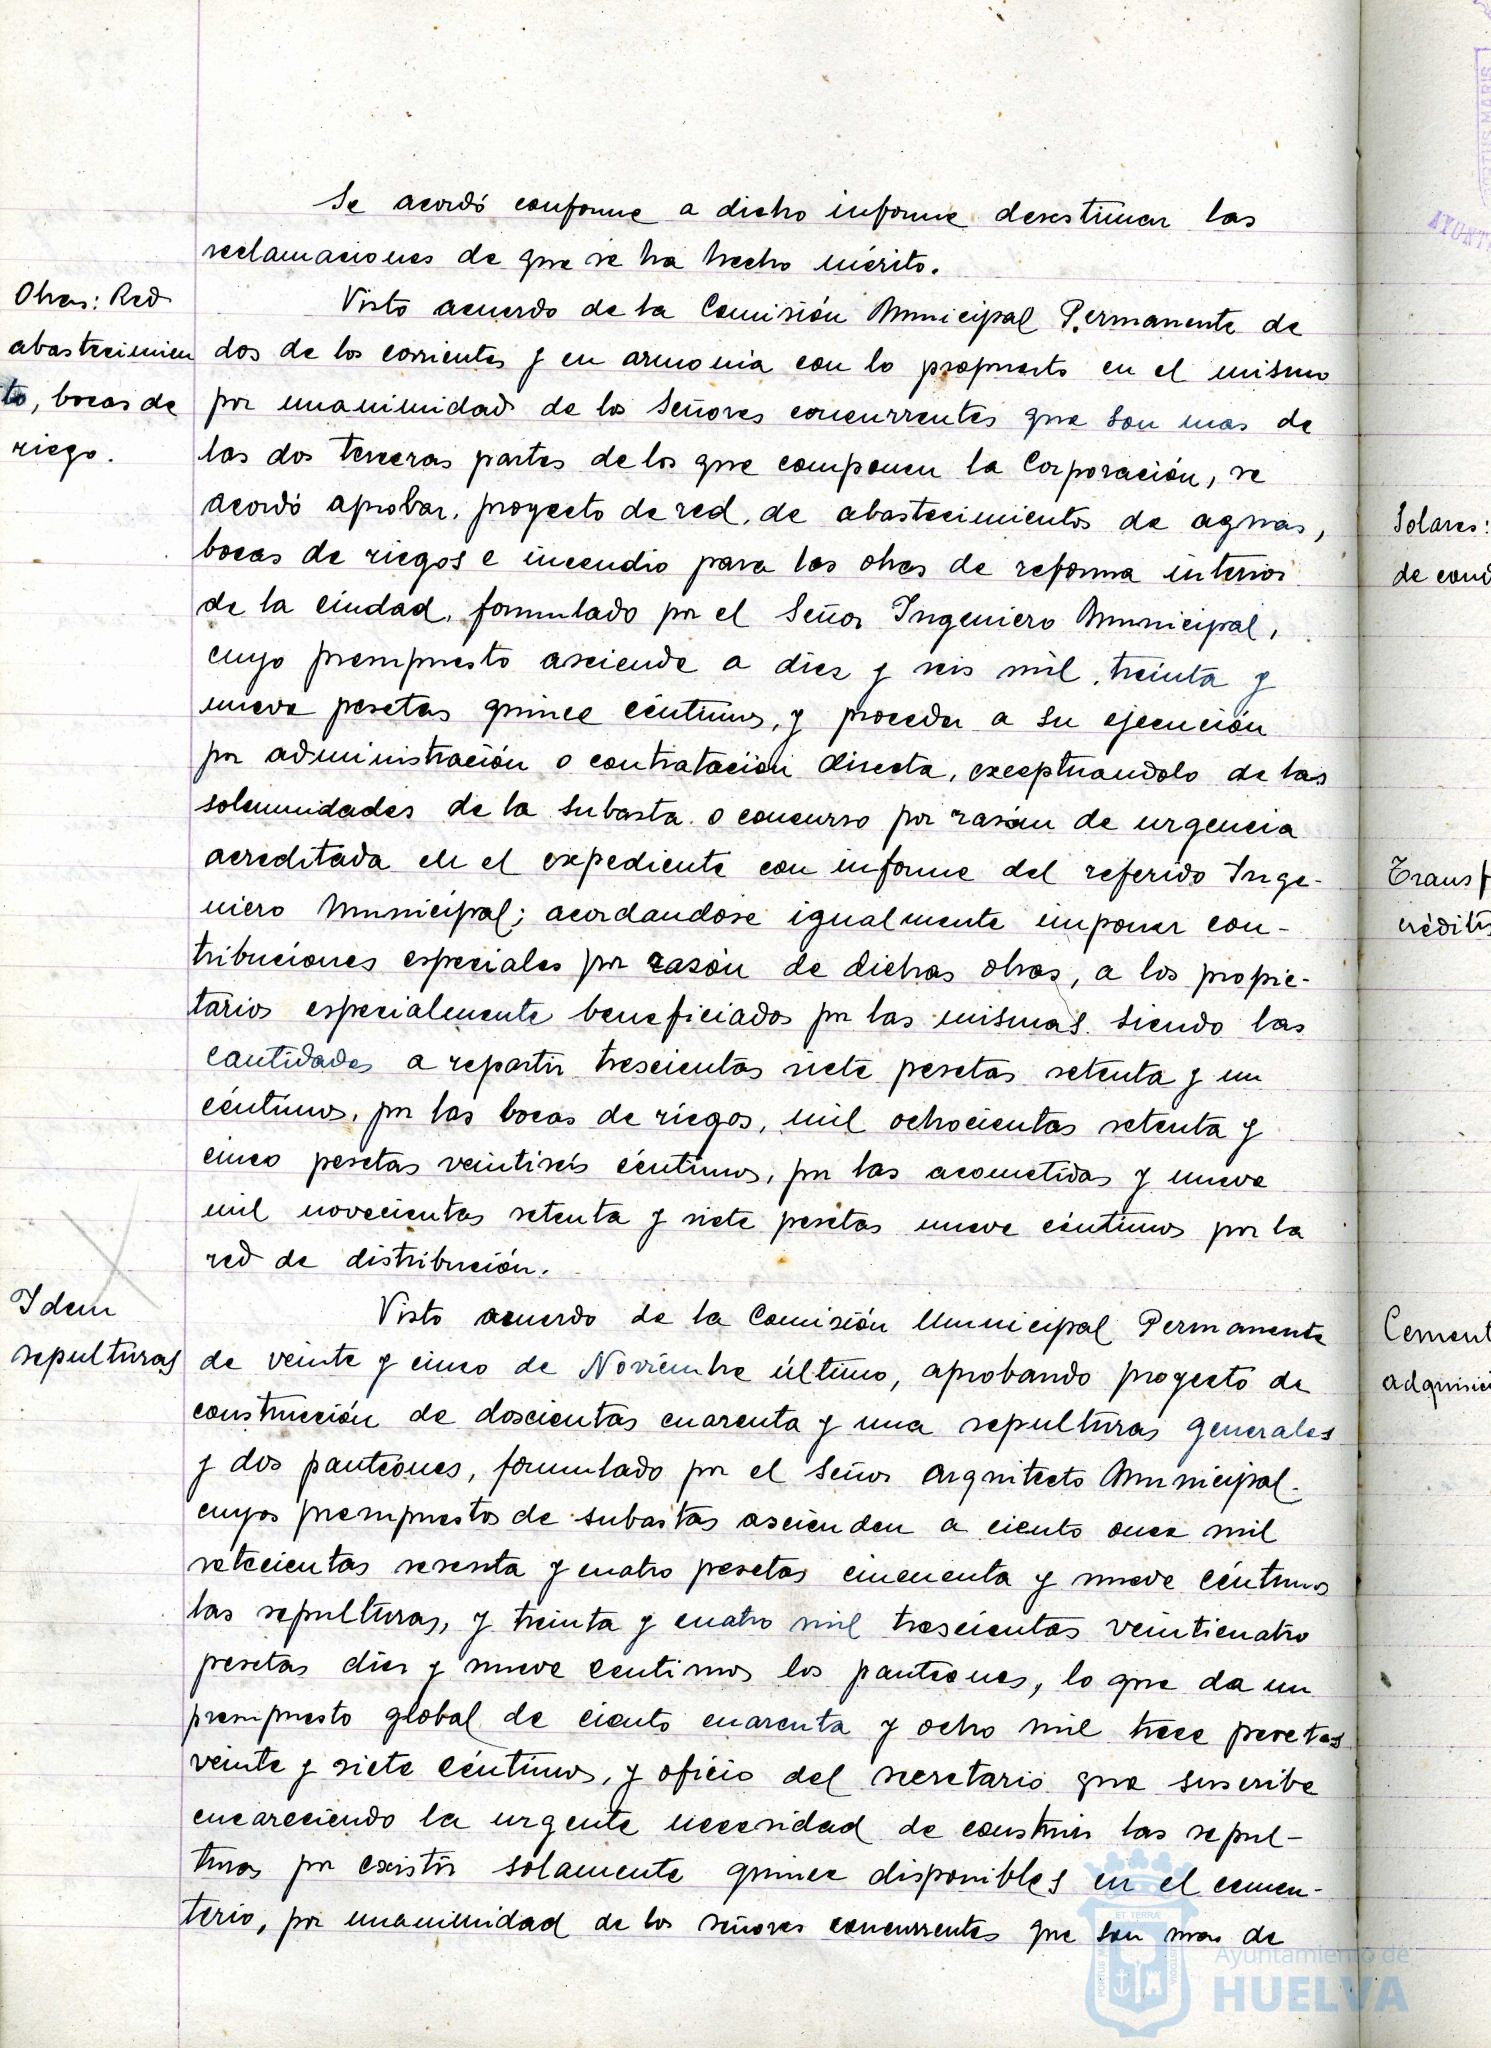 Se acordó conforme a dicho informe desestimar las
reclamaciones de que se ha hecho mérito.
Obras: Red
abastecimien
to, bocas de
riego.
Visto acuerdo de la Comisión Municipal Permanente de
dos de los corrientes y en armonia con lo propuesto en el mismo
por unanimidad de los Señores concurrentes que son mas de
las dos terceras partes de los que componen la Corporación, se
acordó aprobar, proyecto de red, de abastecimientos de aguas,
bocas de riegos e incendio para las obras de reforma interior
de la ciudad, formulado por el Señor Ingeniero Municipal,
cuyo presupuesto asciende a diez y seis mil, treinta y
nueve pesetas quince céntimos, y proceder a su ejecución
por administración o contratación directa, exceptuandolo de las
solemnidades de la subasta o concurso por razón de urgencia
acreditada en el expediente con informe del referido Inge-
niero Municipal; acordandose igualmente imponer con-
tribuciones especiales por razón de dichas obras, a los propie-
tarios especialmente beneficiados por las mismas. siendo las
cantidades a repartir trescientas siete pesetas setenta y un
céntimos, por las bocas de riegos, mil ochocientas setenta y
cinco pesetas veintiseis céntimos, por las acometidas y nueve
mil novecientas setenta y siete pesetas nueve céntimos por la
red de distribución.
Idem
sepulturas
Visto acuerdo de la Comisión Municipal Permanente
de veinte y cinco de Noviembre último, aprobando proyecto de
construcción de doscientas cuarenta y una sepulturas generales
y dos panteones, formulado por el Señor Arquitecto Municipal.
cuyos presupuestos de subastas ascienden a ciento once mil
setecientas sesenta y cuatro pesetas cincuenta y nueve céntimos
las sepulturas, y treinta y cuatro mil trescientas veinticuatro
pesetas diez y nueve centimos los panteones, lo que da un
presupuesto global de ciento cuarenta y ocho mil trece pesetas
veinte y siete céntimos, y oficio del secretario que suscribe
encareciendo la urgente necesidad de construir las sepul-
turas por existir solamente quince disponibles en el cemen-
terio, por unanimidad de los señores concurrentes que son mas de
Solares:
de cond
Transf
crédits
Cement
adquisici
Ayuntamiento de
HUELVA